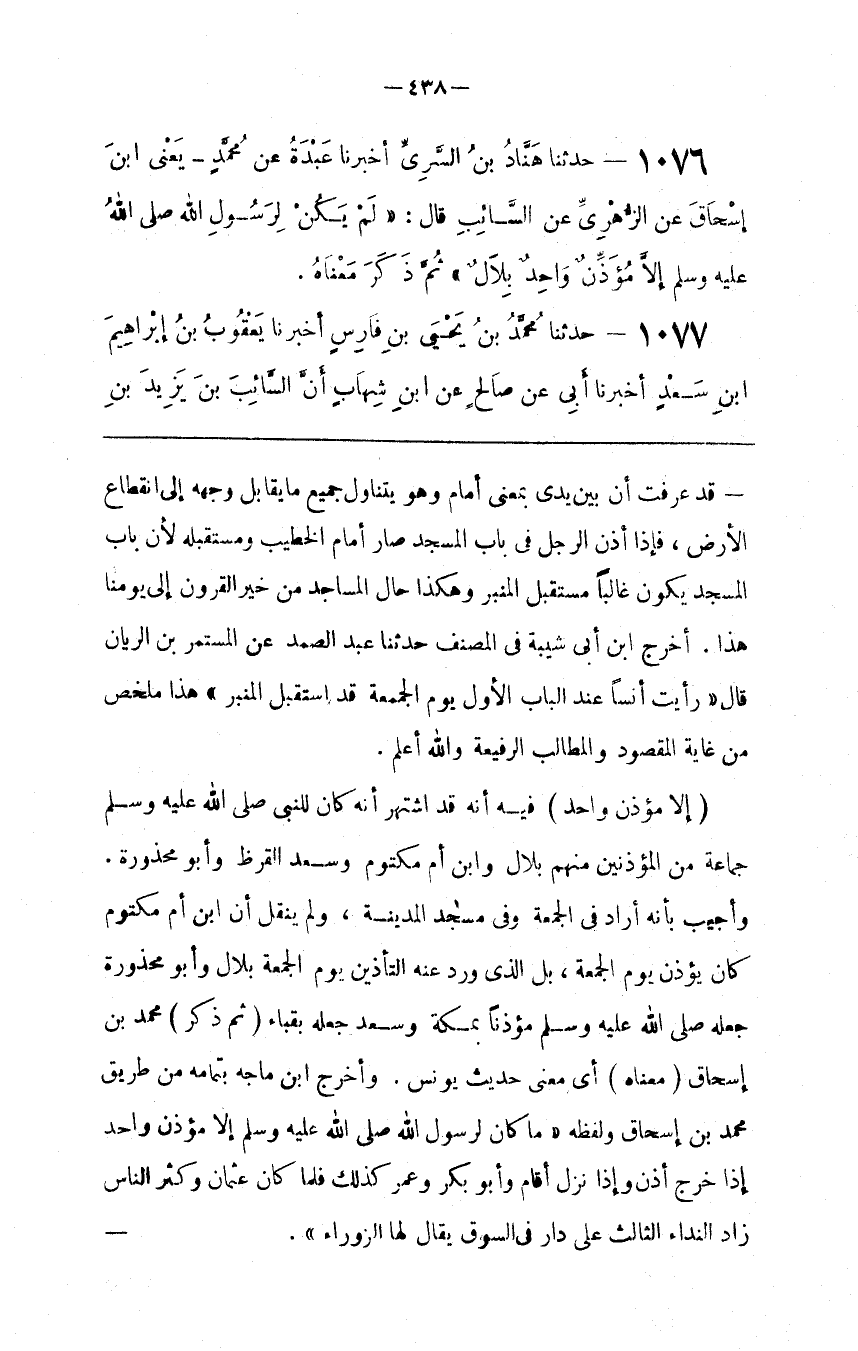 — ٤٣٨ —
١٠٧٦ — حدثنا هَنَّادُ بنُ السَّرِىِّ أخبرنا عَبْدَةُ عن مُحمَّدٍ - يَعْنى ابنَ
إسْحاَقَ عن الزُّهْرِىِّ عن السَّـائِبِ قال : « لَمْ يَـكُنْ لِرَسُـولِ الله صلى اللهُ
عليه وسلم إلاَّ مُؤَذِّنٌ وَاحِدٌ بِلاَلٌ » ثُمَّ ذَكَرَ مَعْنَاهُ .
١٠٧٧ — حدثنا مُحمَّدُ بنُ يَحْـيَى بنِ فَارِسٍ أخبرنا يَعْقُوبُ بنُ إبْرَاهِيمَ
ابنِ سَـعْدٍ أخبرنا أَبِى عن صاَلحٍ عن ابنِ شِهاَبٍ أنَّ السَّائِبَ بنَ يَزِيدَ بنِ
— قد عرفت أن بين يدى بمعنى أمام وهو يتناول جميع مايقابل وجهه إلى انقطاع
الأرض ، فإذا أذن الرجل فى باب المسجد صار أمام الخطيب ومستقبله لأن باب
المسجد يكون غالباً مستقبل المنبر وهكذا حال المساجد من خير القرون إلى يومنا
هذا . أخرج ابن أبى شيبة فى المصنف حدثنا عبد الصمد عن المستمر بن الريان
قال « رأيت أنساً عند الباب الأول يوم الجمعة قد استقبل المنبر » هذا ملخص
من غاية المقصود والمطالب الرفيعة والله أعلم .
( إلا مؤذن واحد ) فيـه أنه قد اشتهر أنه كان للنبى صلى الله عليه وسـلم
جماعة من المؤذنين منهم بلال وابن أم مكتوم وسـعد القرظ وأبو محذورة .
وأجيب بأنه أراد فى الجمعة وفى مسجد المدينـة ، ولم ينقل أن ابن أم مكتوم
كان يؤذن يوم الجمعة ، بل الذى ورد عنه التأذين يوم الجمعة بلال وأبو محذورة
جعله صلى الله عليه وسـلم مؤذناً بمـكة وسـعد جعله بقباء ( ثم ذكر ) محمد بن
إسحاق ( معناه ) أى معنى حديث يونس . وأخرج ابن ماجه بتمامه من طريق
محمد بن إسحاق ولفظه « ماكان لرسول الله صلى الله عليه وسلم إلا مؤذن واحد
إذا خرج أذن وإذا نزل أقام وأبو بكر وعمر كذلك فلما كان عثمان وكثر الناس
زاد النداء الثالث على دار فى السوق يقال لها الزوراء » . —